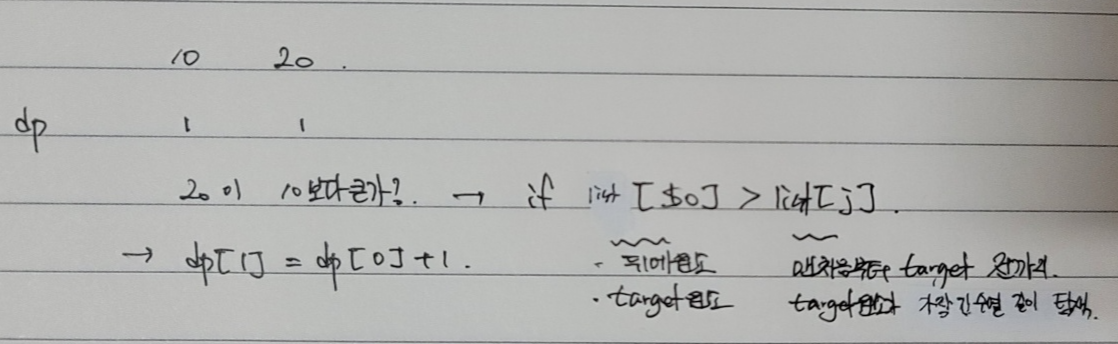 10 20 .
dp 1 1
20이 10보다큰가? → if list [$0] > list[j].
→ dp[1] = dp[0]+1. · 뒤에원소 맨처음부터 target 전까지.
· target원소 target원소와 가장 긴 수열 길이 탐색.